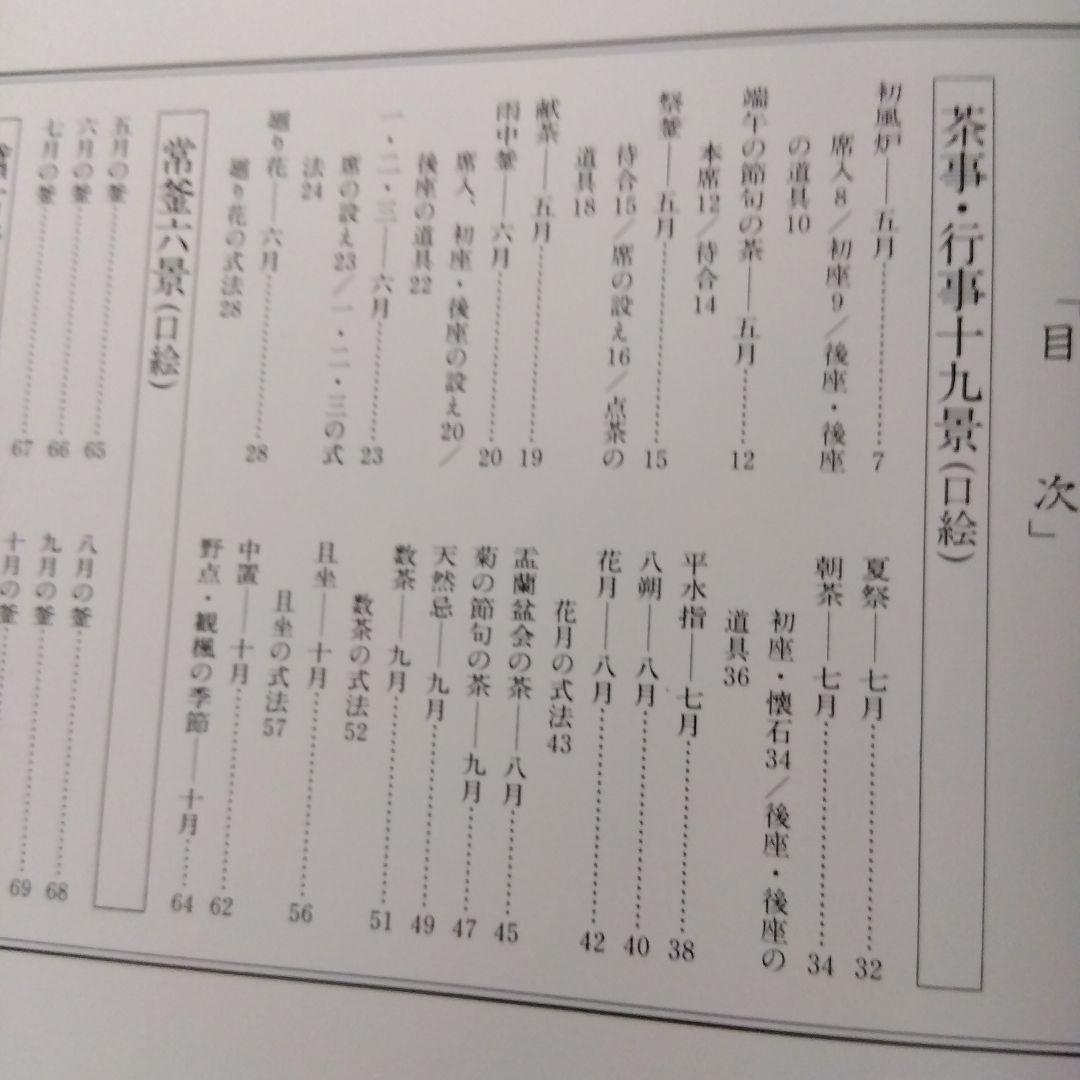 「目次」
茶事・行事十九景(口絵)
初風炉――五月…………7
席入8／初座9／後座・後座
の道具10
端午の節句の茶――五月…………12
本席12／待合14
祭釜――五月…………15
待合15／席の設え16／点茶の
道具18
献茶――五月…………19
雨中釜――六月…………20
席入、初座・後座の設え20／
後座の道具22
一・二・三――六月…………23
席の設え23／一・二・三の式
法24
廻り花――六月…………28
廻り花の式法28
夏祭――七月…………32
朝茶――七月…………34
初座・懐石34／後座・後座の
道具36
平水指――七月…………38
八朔――八月…………40
花月――八月…………42
花月の式法43
盂蘭盆会の茶――八月…………45
菊の節句の茶――九月…………47
天然忌――九月…………49
数茶――九月…………51
数茶の式法52
且坐――十月…………56
且坐の式法57
中置――十月…………62
野点・観楓の季節――十月……64
常釜六景(口絵)
五月の釜…………65
六月の釜…………66
七月の釜…………67
八月の釜…………68
九月の釜…………69
十月の釜…………